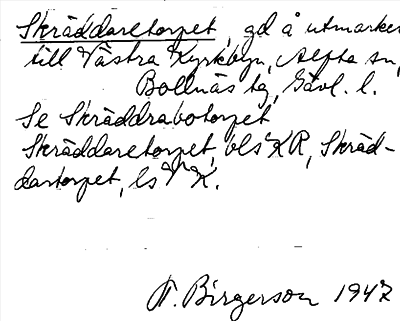 Skräddaretorpet, gd å utmarken
till Västra Kyrkbyn, Alfta sn,
Bollnäs tg, Gävl. l.
Se Skräddrabotorpet
Skräddaretorpet, ols KR, Skräd-
dartorpet, ls K.
T. Birgerson 1947